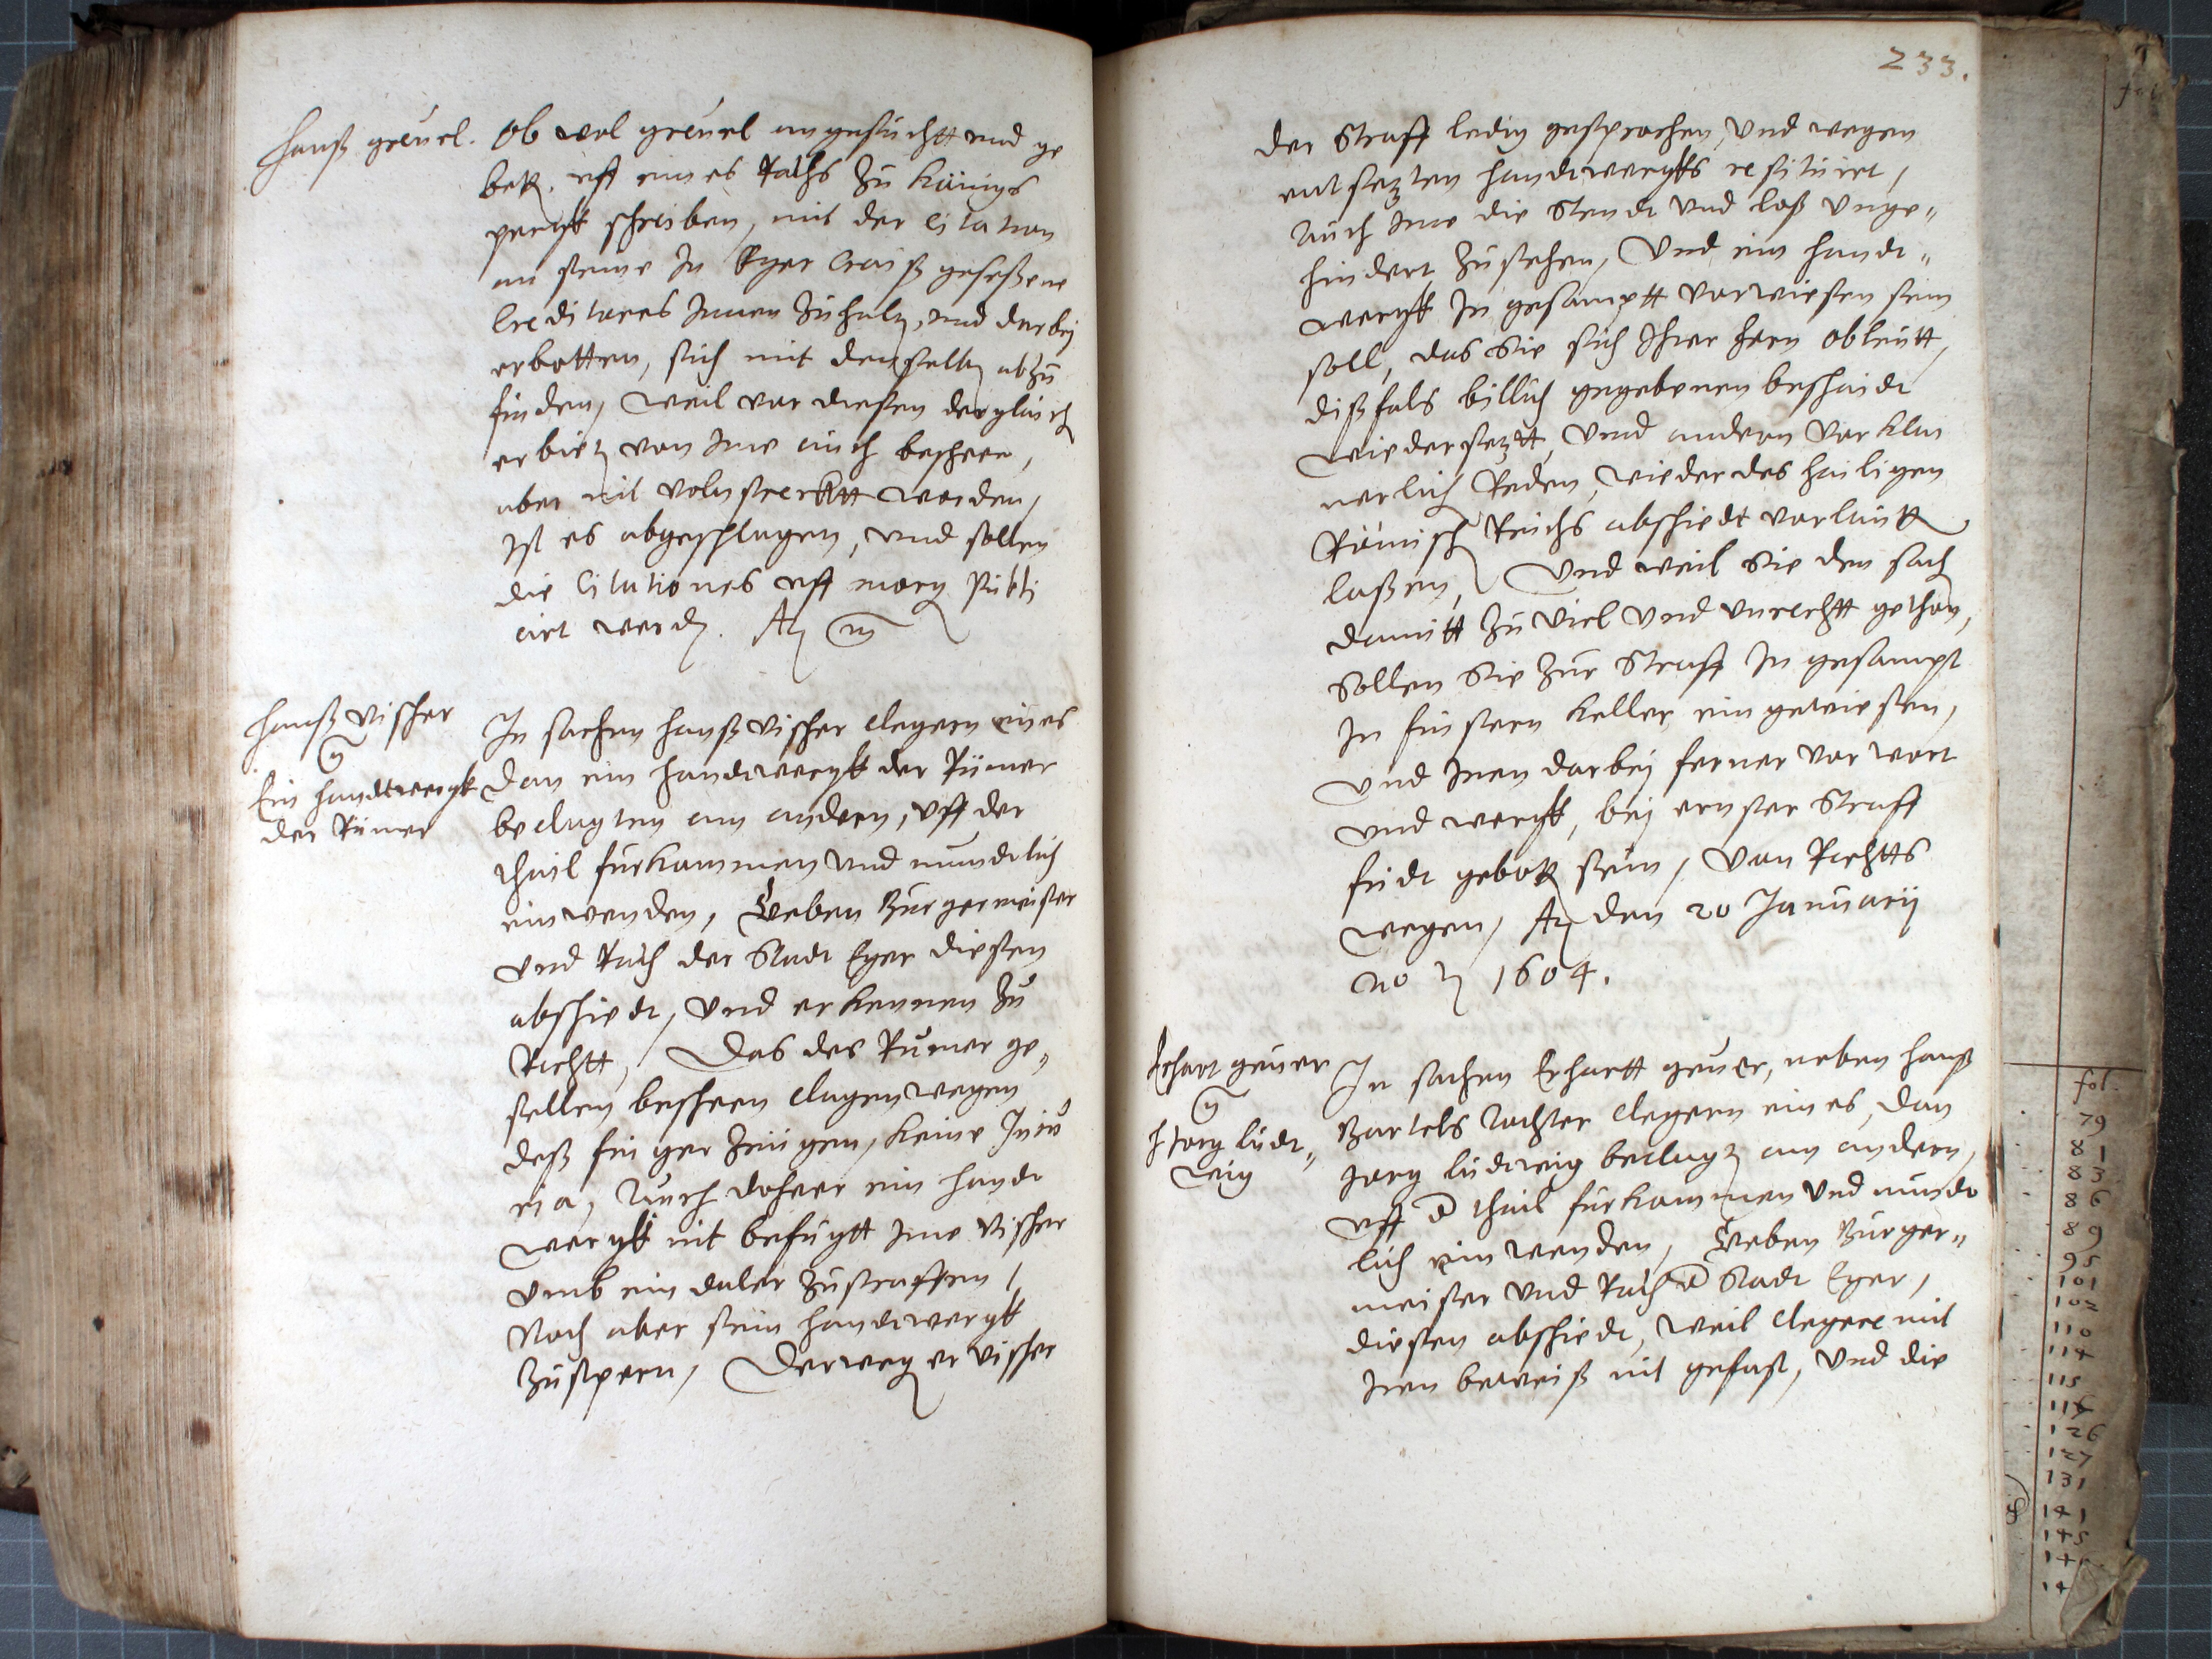 Hanß greuel.
Ob wol greuel angesuchtt und ge
betten. uff eines Raths zu Königs
pergkk schreiben, mit der Citation
an seine In Eger Craiß geseßene
Creditores Innen zuhalten, und darbej
erbotten, sich mit denselben abzu
finden, Weil vor diesen dergleich
erbieten von Ime auch beschehen,
aber nit volnstrecktt worden,
Ist es abgeschlagen, und sollen
die Citationes uff morgen Publi
cirt werden.
Hanß Vischer
Ein handtwergk
der Rümer
In sachen Hanß Vischer Clegern eines
Dan ein Handtwergkk der Rümer
beclagten am andern, Uff der
theil fürkommen und mundtlich
einwenden, Geben Burgermeister
Und Rath der Stadt Eger diesen
abschiedt, Und erkennen zu
Rechtt, Das des Rümer ge„
sellen beschehen Clagen wegen
deß finger Zeigen, keine Iniu
ria, Auch dohero ein handt
wergkk nit befugtt Ime Vischer
Umb ein daler zustraffen,
Noch aber sein handtwergkk
zuspern, Derwegen er Vischer
233.
der Straff ledig gesprochen, Und wegen
entsetzten handtwergkks restituirt,
Auch Ime die Stendt Und laß Unge„
hindert zustehen, Und ein handt„
wergkk In gesamptt vorwiesen sein
soll, das Sie sich Ihrer Hern Obleutt,
dißfals billich gegebenen beschaidt
wiedersetztt, Und andern Vorklei
nerlich Reden, wieder des heiligen
Römischen Reichs abschiedt vorlautten
laßen, Und weil Sie den sachen
damitt zu Viel Und Unrechtt gethan,
Sollen Sie zur Straff In gesampt
In finstern Keller eingewiesen,
Und Inen darbej ferner Vor wort
Und wergkk, bej ernster Straff
fridt gebotten sein, Von Rechtts
wegen, Actum den 20 Januarij
1604.
Erhart geuer
Jorg ludt„
wig
In sachen Erhartt geuer, neben Hanß
Bartels Tochter Clegern eines, Dan
Jorg ludtwig beclagten am andern,
Uff der theil fürkommen Und mundt
lich einwenden, Geben Burger„
meister Und Rath der Stadt Eger,
diesen abschiedt, Weil Clegere mit
Iren beweiß nit gefast, Und die
fol.
79
81
83
86
89
95
101
102
110
114
115
116
126
127
131
141
145